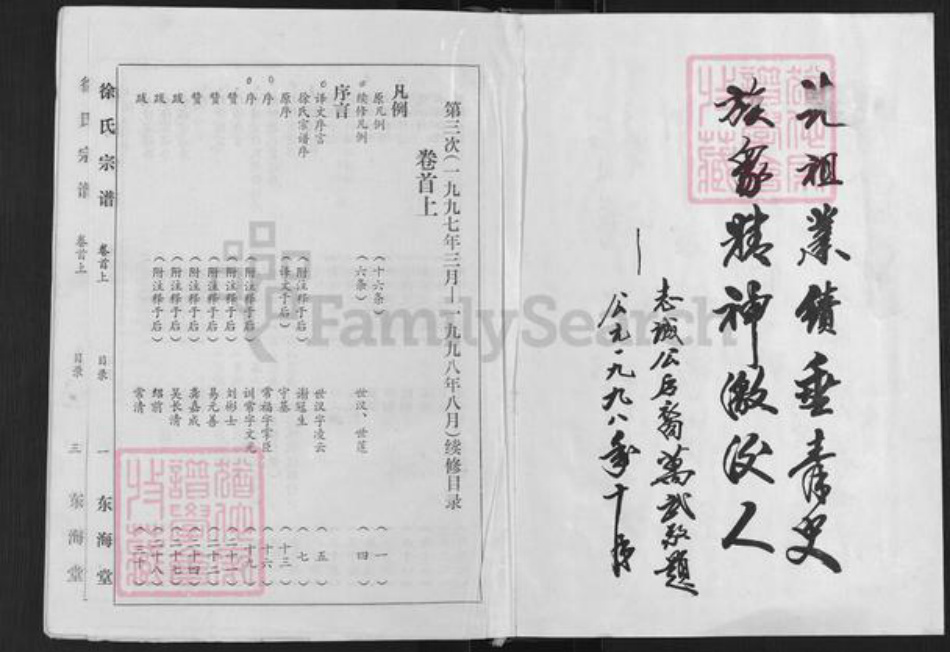 先祖業績垂青史
族象精神激后人
志诚公后裔萬武敬題
公元一九九八年十月
第三次(一九九七年三月—一九九八年八月)续修目录
卷首上
凡例
原凡例 (十六条) (一)
续修凡例 (六条) 世汉、世莲 (四)
序言
译文序言 世汉字凌云 (五)
徐氏宗谱序 (附注释于后) 谢冠生 (七)
原序 (译文于后) 守基 (十三)
序 常福字掌臣 (十六)
序 (附注释于后) 训常字文元 (十九)
赞 (附注释于后) 刘彬士 (二十一)
赞 (附注释于后) 易元善 (二十二)
赞 (附注释于后) 龚嘉成 (二十四)
跋 (附注释于后) 吴长清 (二十七)
跋 (附注释于后) 绍前 (二十八)
跋 常清 (三十)
徐氏宗谱 卷首上 目录 一 东海堂
徐氏宗谱 卷首上 目录 三 东海堂
FamilySearch